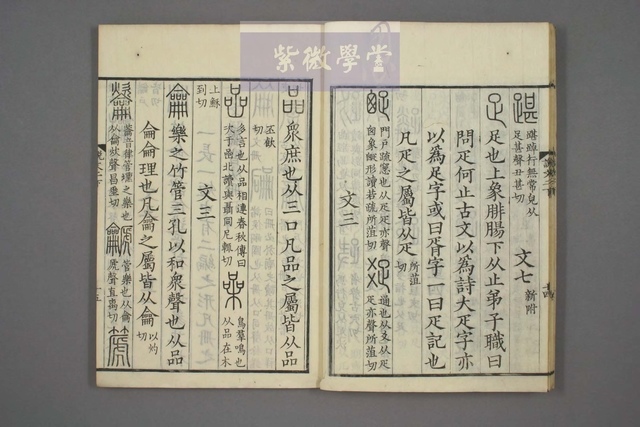 紫微學堂
踸
踸踔行無常皃从
足甚聲丑甚切
文七 新附
𤴓
足也上象腓腸下从止弟子職曰
問疋何止古文以爲詩大疋字亦
以爲足字或曰胥字一曰疋記也
凡疋之屬皆从疋 所菹切
𤴙
門戶疏窻也从疋疋亦聲
囪象𤴙形讀若疏所菹切
𤕟
通也从㸚从疋
疋亦聲所菹切
文三
品
衆庶也从三口凡品之屬皆从品
丕飲
切
嵒
多言也从品相連春秋傳曰
次于嵒北讀與聶同尼輒切
喿
鳥羣鳴也
从品在木
上蘇
到切
文三
龠
樂之竹管三孔以和衆聲也从品
侖侖理也凡龠之屬皆从龠 以灼
切
籥音律管壎之樂也
从龠炊聲昌垂切
管樂也从龠
虒聲直离切
篪
說文二下
十五